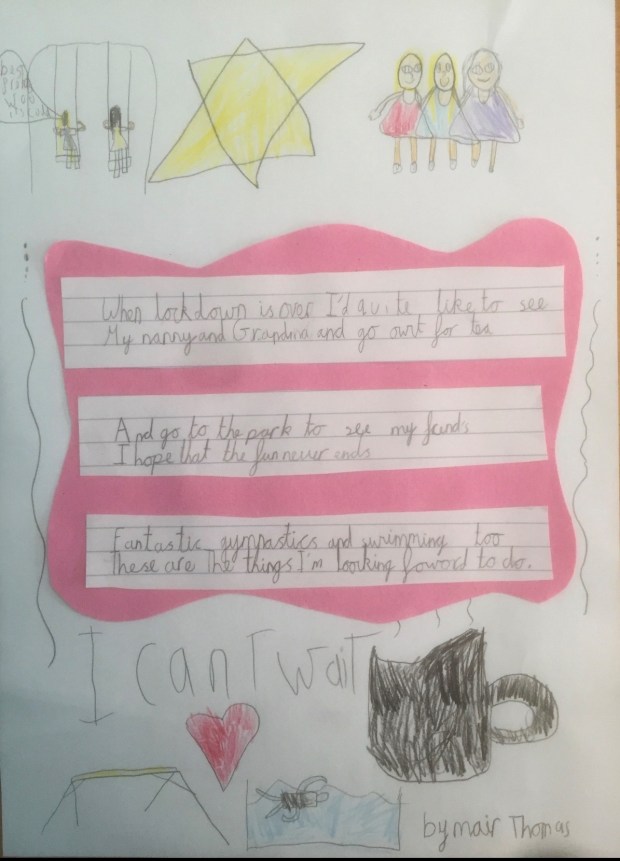 When lockdown is over I'd quite like to see
My nanny and Grandma and go ownt for tea
And go to the park to see my
I hope that the fun never ends
Fantastic gymnastics and swimming too
These are the things I'm looking foword to do.
I can't wait
by mair Thomas